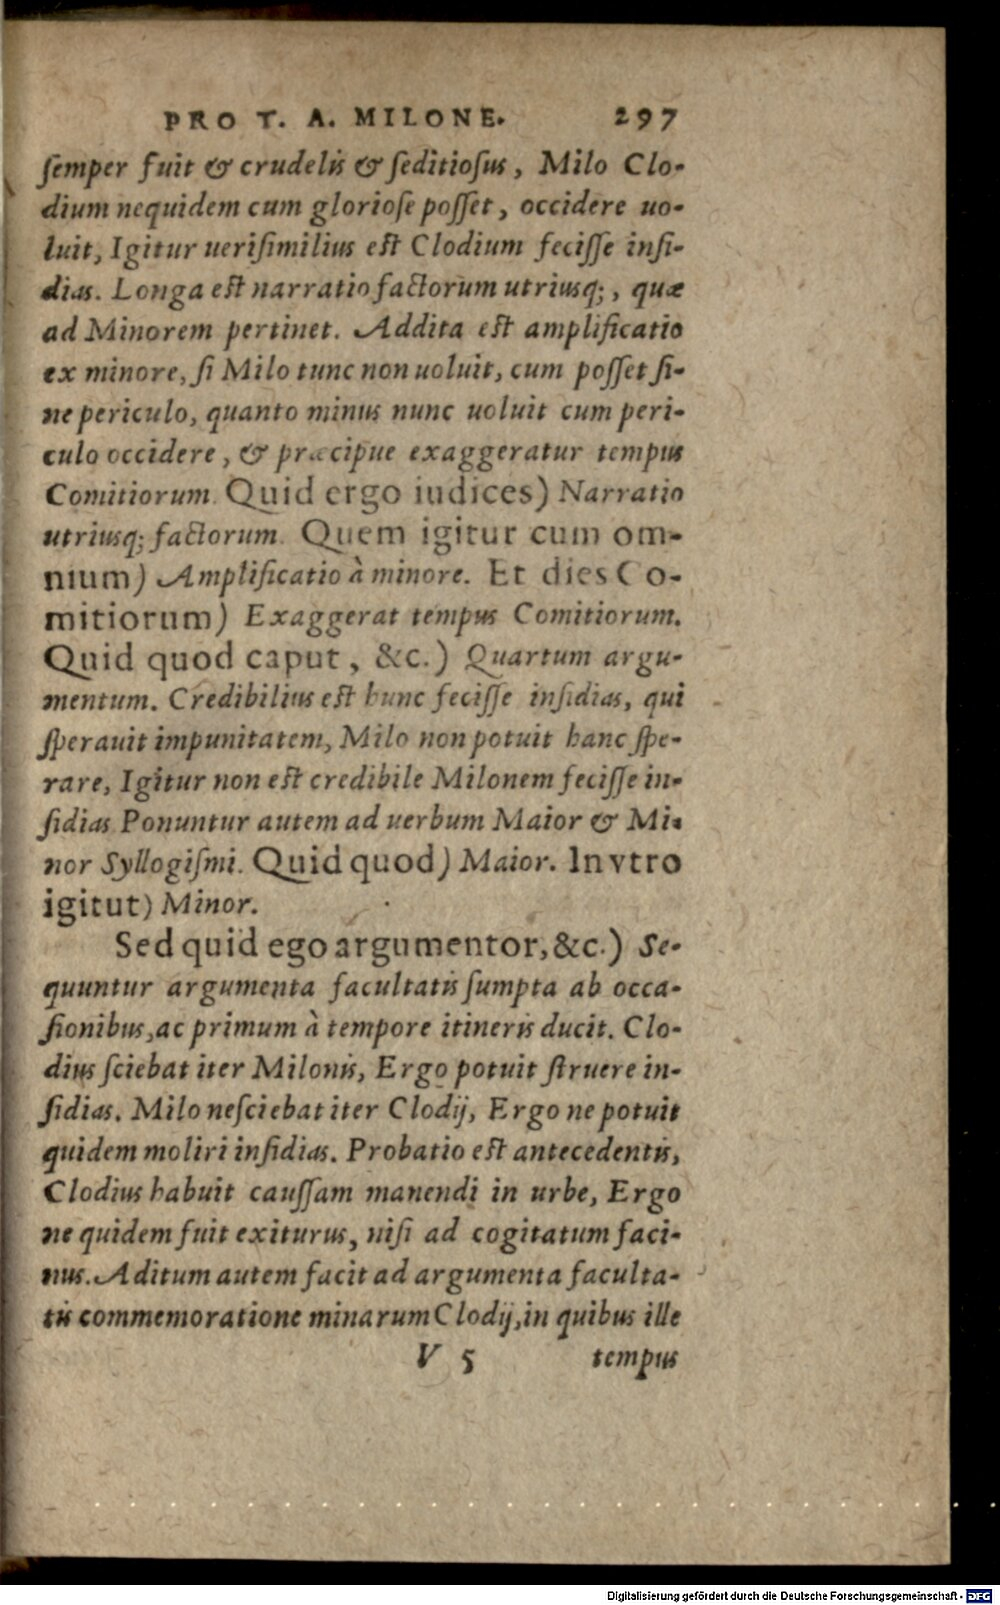 PRO T. A. MILONE. 297
semper fuit & crudelis & seditiosus, Milo Clo-
dium nequidem cum gloriose posset, occidere uo-
luit, Igitur uerisimilius est Clodium fecisse insi-
dias. Longa est narratio factorum utriusq;, quæ
ad Minorem pertinet. Addita est amplificatio
ex minore, si Milo tunc non uoluit, cum posset si-
ne periculo, quanto minus nunc uoluit cum peri-
culo occidere, & præcipue exaggeratur tempus
Comitiorum. Quid ergo iudices) Narratio
utriusq; factorum. Quem igitur cum om-
nium) Amplificatio à minore. Et dies Co-
mitiorum) Exaggerat tempus Comitiorum.
Quid quod caput, &c.) Quartum argu-
mentum. Credibilius est hunc fecisse insidias, qui
sperauit impunitatem, Milo non potuit hanc spe-
rare, Igitur non est credibile Milonem fecisse in-
sidias. Ponuntur autem ad uerbum Maior & Mi-
nor Syllogismi. Quid quod) Maior. In vtro
igitut) Minor.
Sed quid ego argumentor, &c.) Se-
quuntur argumenta facultatis sumpta ab occa-
sionibus, ac primum à tempore itineris ducit. Clo-
dius sciebat iter Milonis, Ergo potuit struere in-
sidias. Milo nesciebat iter Clodij, Ergo ne potuit
quidem moliri insidias. Probatio est antecedentis,
Clodius habuit caussam manendi in urbe, Ergo
ne quidem fuit exiturus, nisi ad cogitatum faci-
nus. Aditum autem facit ad argumenta faculta-
tis commemoratione minarum Clodij, in quibus ille
V 5 tempus
Digitalisierung gefördert durch die Deutsche Forschungsgemeinschaft - DFG